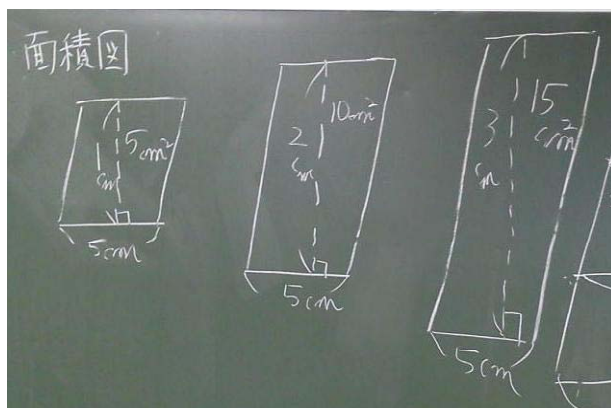 面積図
1
cm
5cm²
5cm
2
cm
10cm²
5cm
3
cm
15
cm²
5cm